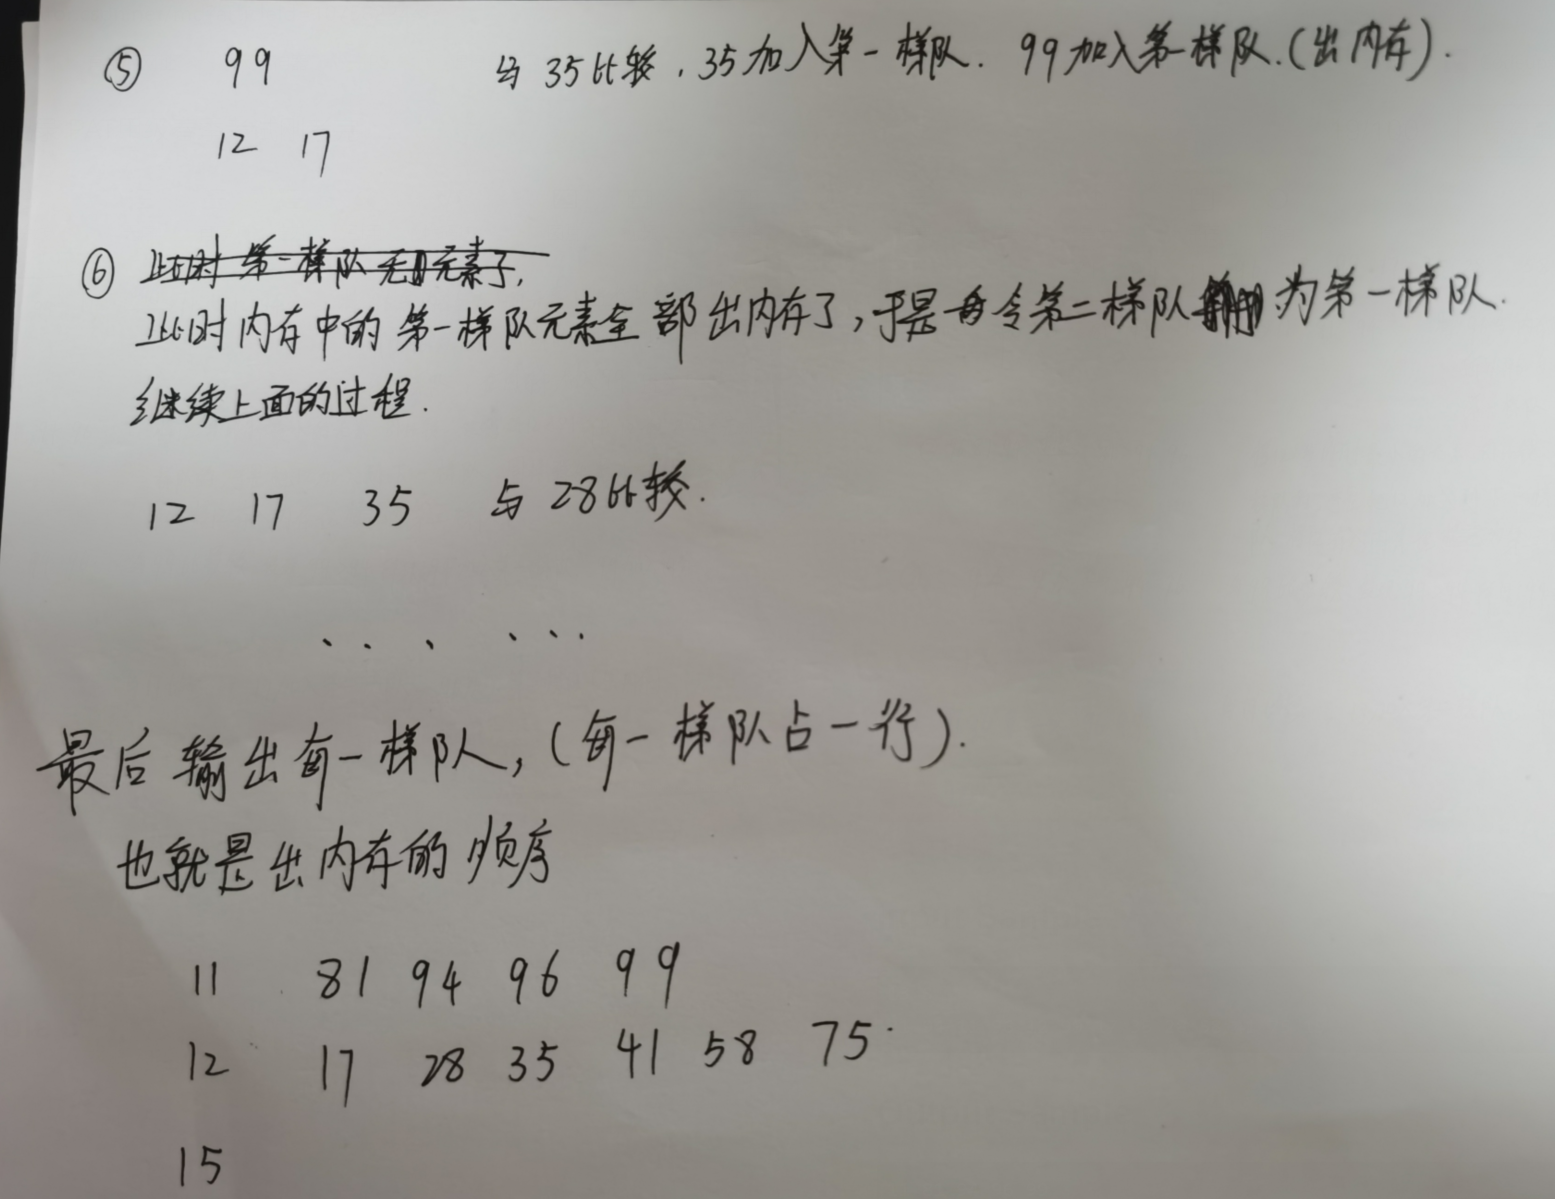 ⑤ 99 与35比较,35加入第一梯队. 99加入第一梯队.(出内存).
12 17
⑥ 此时第一梯队无元素了,
此时内存中的第一梯队元素全部出内存了,于是令第二梯队为第一梯队.
继续上面的过程.
12 17 35 与28比较.
......
最后输出每一梯队,(每一梯队占一行).
也就是出内存的顺序
11 81 94 96 99
12 17 28 35 41 58 75
15